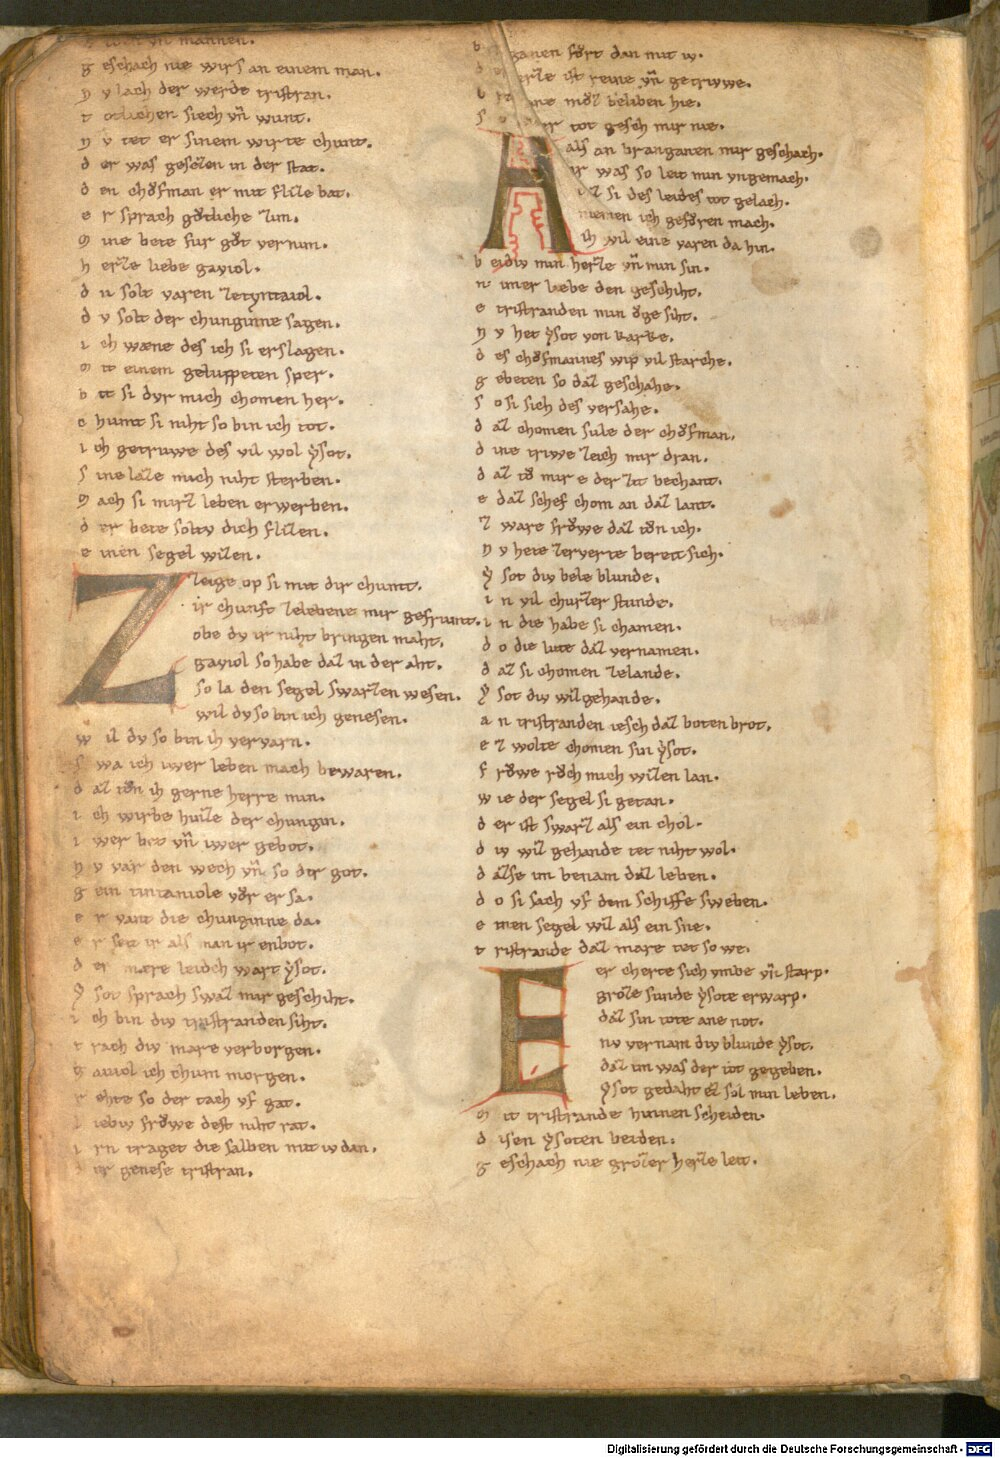 mannen.
g eschach nie wirs an einem man.
n v lach der werde tristran.
t otlichen siech vn̄ wunt.
n v tet er sinem wirte chunt.
d er was geseʒʒen in der stat.
d en chǒfman er mit fliʒe bat.
e r sprach gǒtliche zim.
m ine bete fur gǒt vernim.
h erʒe liebe gaviol.
d u solt varen ze tyntaiol.
d v solt der chunginne sagen.
i ch wæne des ich si erslagen.
m it einem geluppeten sper.
b it si dvr mich chomen her.
c humt si niht so bin ich tot.
i ch getruwe des vil wol ẏsot.
s ine laʒe mich niht sterben.
m ach si mirʒ leben erwerben.
d er bete soltv dich fliʒen.
e inen segel wiʒen.
Zeige op si mit dir chumt.
ir chunft zelebene mir gefrumt.
obe dv ir niht bringen maht.
gaviol so habe daʒ in der aht.
so la den segel swarzen wesen.
wil dv so bin ich genesen.
w il dv so bin ih vervarn.
s wa ich iwer leben mach bewaren.
d aʒ tǒn ih gerne herre min.
i ch wirbe huiʒe der chungin.
i wer bet vn̄ iwer gebot.
n v var den wech vn̄ so dir got.
g ein tintaniole vǒr er sa.
e r vant die chunginne da.
e r seit ir als man ir enbot.
d er mære leidich wart ẏsot.
ẏ sot sprach swaʒ mir geschiht.
i ch bin div tristranden siht.
t rach div mære verborgen.
g aviol ich chum morgen.
r ehte so der tach vf gat.
l iebiv frǒwe dest niht rat.
i rn traget die salben mit iv dan.
d ir genese tristran.
ganen fǒrt dan mit iv.
ist reine vn̄ getriwe.
mǒʒ beliben hie.
tot gesch mir nie.
Als an branganen mir geschach.
was so leit min vngemach.
si des leides tot gelach.
ich gefǒren mach.
ih vil eine varen da hin.
b eidiv min herʒe vn̄ min sin.
n iner liebe den geschiht.
e tristranden min ǒge siht.
n v het ẏsot von karke.
d es chǒfmannes wip vil starche.
g ebeten so daʒ geschahe.
s o si sich des versahe.
d aʒ chomen sule der chǒfman.
d ine triwe zeich mir dran.
d aʒ tǒ mir e der zit bechant.
e daʒ schef chom an daʒ lant.
z ware frǒwe daʒ tǒn ich.
n v hete zerverte bereit sich.
ẏ sot div bele blunde.
i n vil churzer stunde.
i n die habe si chamen.
d o die lute daʒ vernamen.
d aʒ si chomen zelande.
ẏ sot div wiʒgehande.
a n tristranden iesch daʒ boten brot.
e ʒ wolte chomen sin ẏsot.
f rǒwe rǒch mich wiʒen lan.
w ie der segel si getan.
d er ist swarʒ als ein chol.
d iv wiʒ gehande tet niht wol.
d aʒ se im benam daʒ leben.
d o si sach vf dem schiffe sweben.
e inen segel wiʒ als ein sne.
t ristrande daʒ mære tet so we.
Er cherte sich vmbe vn̄ starp.
groʒe sunde ẏsote erwarp.
daʒ sin tote ane not.
nv vernam div blunde ẏsot.
daʒ im was der tot gegeben.
ẏsot gedaht eʒ sol min leben.
m it tristrande hinnen scheiden.
d isen ẏsoten beiden.
g eschach nie groʒer herʒe leit.
Digitalisierung gefördert durch die Deutsche Forschungsgemeinschaft - DFG